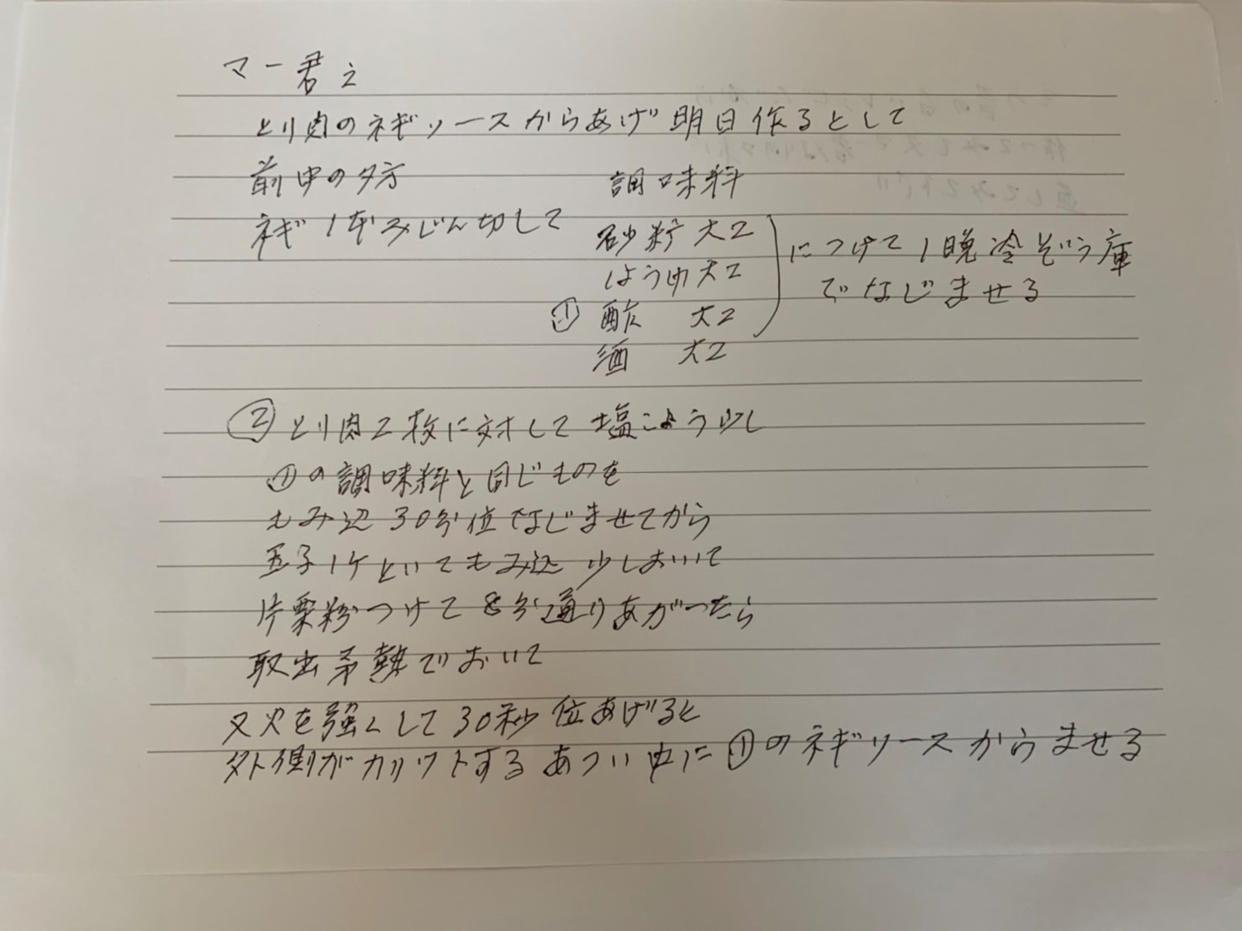 マー君え
とり肉のネギソースからあげ明日作るとして
前中の夕方
ネギ1本みじん切して
調味料
砂糖大2
しょうゆ大2
① 酢 大2
酒 大2
につけて1晩冷ぞう庫
でなじませる
② とり肉2枚に対して塩こしょう少し
①の調味料と同じものを
もみ込30分位なじませてから
玉子1ケといてもみ込少しおいて
片栗粉つけて8分通りあがったら
取出予熱でおいて
又火を強くして30秒位あげると
外側がカリットするあつい中に①のネギソースからませる